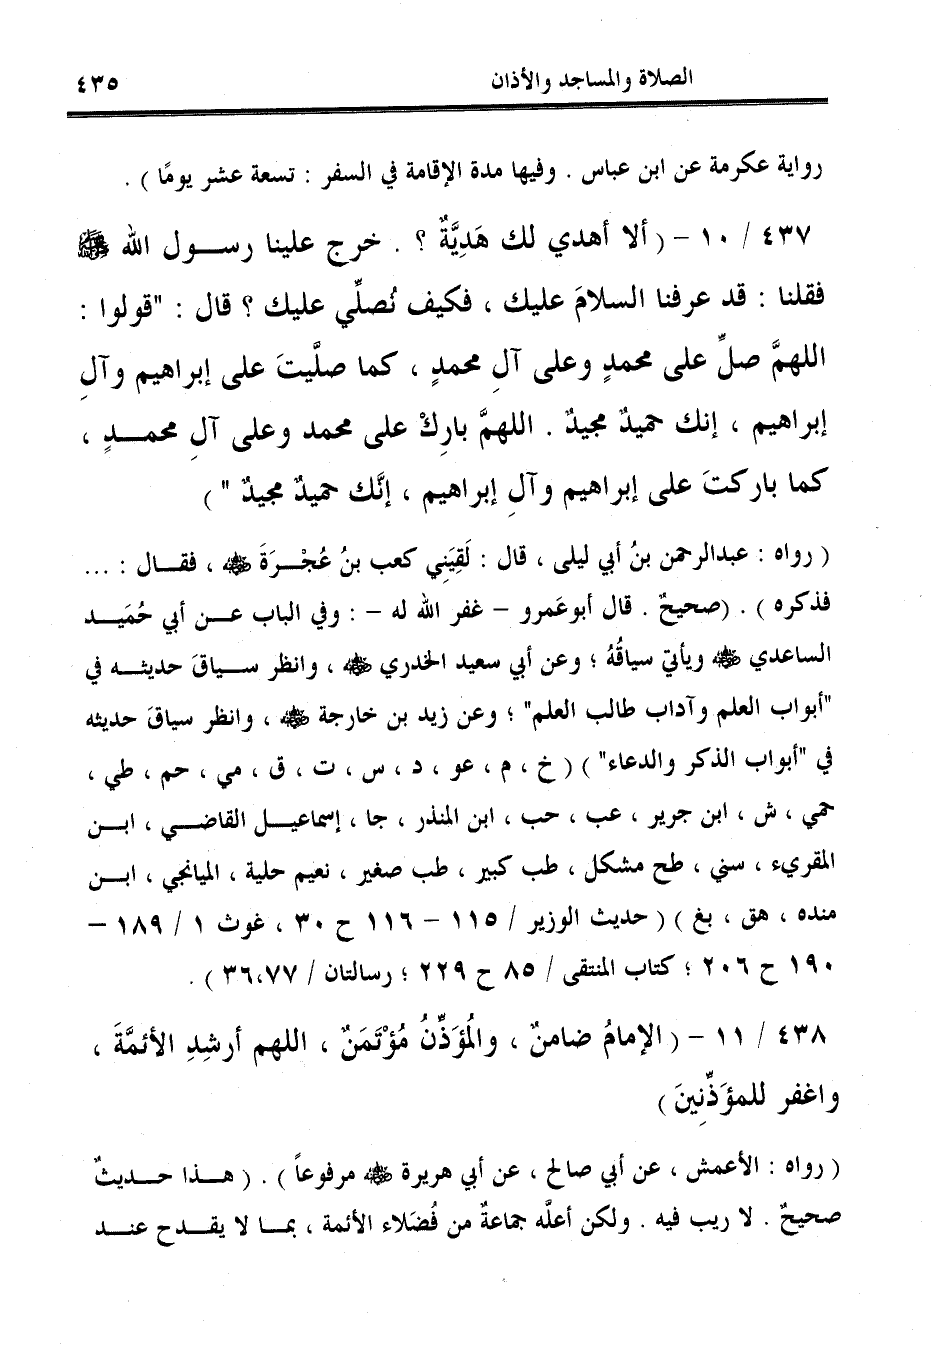 الصلاة والمساجد والأذان ٤٣٥
رواية عكرمة عن ابن عباس . وفيها مدة الإقامة في السفر : تسعة عشر يومًا ) .
٤٣٧ / ١٠ - ( ألا أهدي لك هَدِيَّةٌ ؟ . خرج علينا رســول الله ﷺ
فقلنا : قد عرفنا السلامَ عليك ، فكيف نُصلِّي عليك ؟ قال : "قولوا :
اللهمَّ صلِّ على محمدٍ وعلى آلِ محمدٍ ، كما صلَّيتَ على إبراهيم وآلِ
إبراهيم ، إنك حميدٌ مجيدٌ . اللهمَّ بارِكْ على محمد وعلى آلِ محمــدٍ ،
كما باركتَ على إبراهيم وآلِ إبراهيم ، إنَّك حميدٌ مجيدٌ " )
( رواه : عبدالرحمن بنُ أبي ليلى ، قال : لَقِيَنِي كعب بنُ عُجْــرَةَ ﷺ ، فقــال : ...
فذكره ) . (صحيحٌ . قال أبوعَمرو - غفر الله له - : وفي الباب عــن أبي حُمَيــد
الساعدي ﷺ ويأتي سياقُهُ ؛ وعن أبي سعيد الخدري ﷺ ، وانظر ســياقَ حديثــه في
"أبواب العلم وآداب طالب العلم" ؛ وعن زيد بن خارجة ﷺ ، وانظر سياقَ حديثه
في "أبواب الذكر والدعاء" ) ( خ ، م ، عو ، د ، س ، ت ، ق ، مي ، حم ، طي ،
حمي ، ش ، ابن جرير ، عب ، حب ، ابن المنذر ، جا ، إسماعيــل القاضــي ، ابــن
المقريء ، سني ، طح مشكل ، طب كبير ، طب صغير ، نعيم حلية ، الميانجي ، ابــن
منده ، هق ، بغ ) ( حديث الوزير / ١١٥ - ١١٦ ح ٣٠ ، غوث ١ / ١٨٩ -
١٩٠ ح ٢٠٦ ؛ كتاب المنتقى / ٨٥ ح ٢٢٩ ؛ رسالتان / ٣٦،٧٧ ) .
٤٣٨ / ١١ - ( الإمامُ ضامنٌ ، والمُؤَذِّنُ مُؤْتَمَنٌ ، اللهم أرشِدِ الأئمَّةَ ،
واغفر للمؤَذِّنِينَ )
( رواه : الأعمش ، عن أبي صالح ، عن أبي هريرة ﷺ مرفوعاً ) . ( هــذا حــديثٌ
صحيحٌ . لا ريب فيه . ولكن أعلَّه جماعةٌ من فُضَلاء الأئمة ، بمــا لا يقــدح عنــد